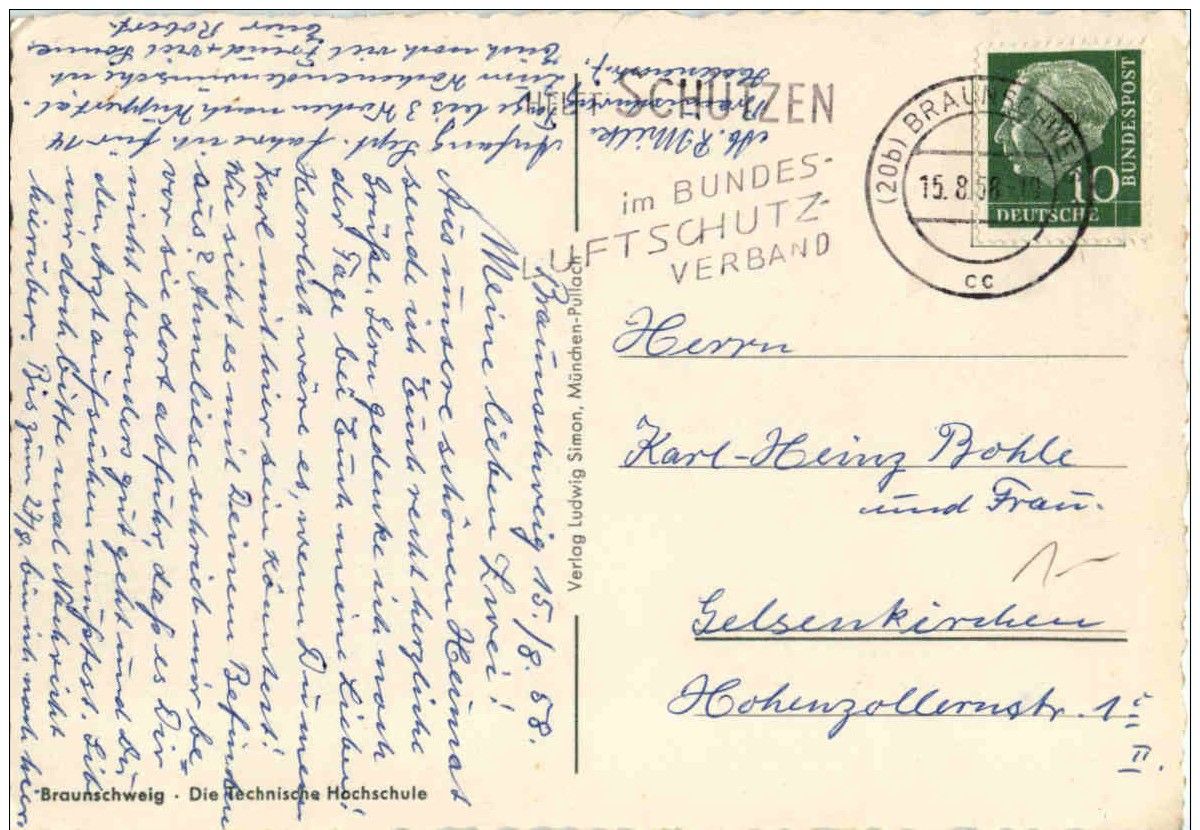 Braunschweig 15./8. 58.
Meine lieben Zwei!
Aus unsere schönen Heimat
sende ich Euch recht herzliche
Grüße. Gern gedenke ich noch
der Tage bei Euch meine Lieben!
Herrlich wäre es, wenn Du mein
Karl mit hier sein könntest!
Wie sieht es mit Deinem Befinden
aus? Anneliese schrieb mir be=
vor sie dort abfuhr, daß es Dir
nicht besonders gut geht und Du
den Arzt aufsuchen mußtest. Gib
mir doch bitte mal Nachricht
hierüber. Bis zum 27/8. bin ich noch hier
Anfang Sept. fahre ich für 14
Tage bis 3 Wochen nach Wuppertal.
Zum Wochenende wünsche ich
Euch noch viel Freud + viel Sonne.
Euer Robert.
Abs. R. Milke
Braunschweig
HELFT SCHÜTZEN
im BUNDES-
LUFTSCHUTZ-
VERBAND
(20b) BRAUNSCHWEIG
15. 8. 58
cc
10
DEUTSCHE
BUNDESPOST
Herrn
Karl-Heinz Bohle
und Frau.
Gelsenkirchen
Hohenzollernstr. 1
II.
Verlag Ludwig Simon, München-Pullach
Braunschweig · Die Technische Hochschule